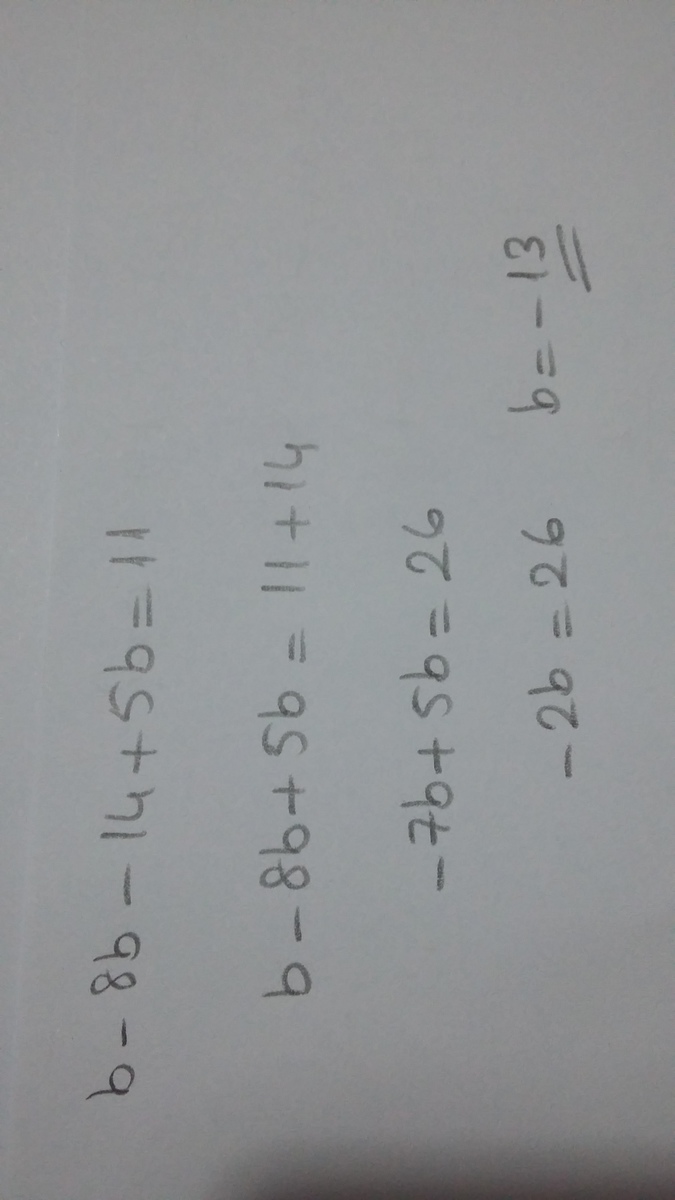 b - 8b - 14 + 5b = 11
b - 8b + 5b = 11 + 14
-7b + 5b = 26
-2b = 26 b = -13